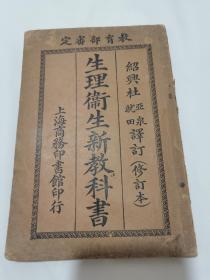 教育部審定
紹興杜亞泉就田譯訂（修訂本）
生理衞生新教科書
上海商務印書館印行